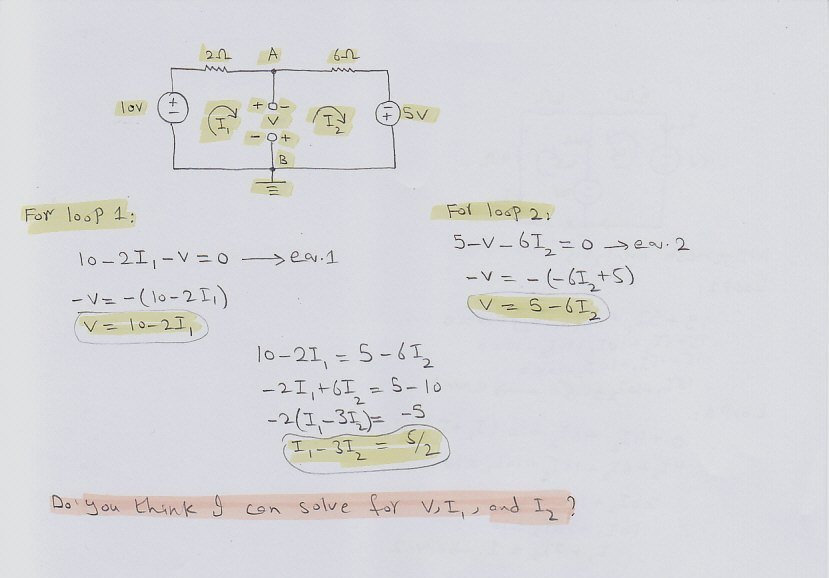 2Ω A 6Ω
10V + - I₁ + - V - + I₂ - + 5V
B
For loop 1:
10-2I₁-V=0 → eq.1
-V=-(10-2I₁)
V=10-2I₁
For loop 2:
5-V-6I₂=0 → eq.2
-V=-(-6I₂+5)
V=5-6I₂
10-2I₁=5-6I₂
-2I₁+6I₂=5-10
-2(I₁-3I₂)=-5
I₁-3I₂=5/2
Do you think I can solve for V, I₁, and I₂?